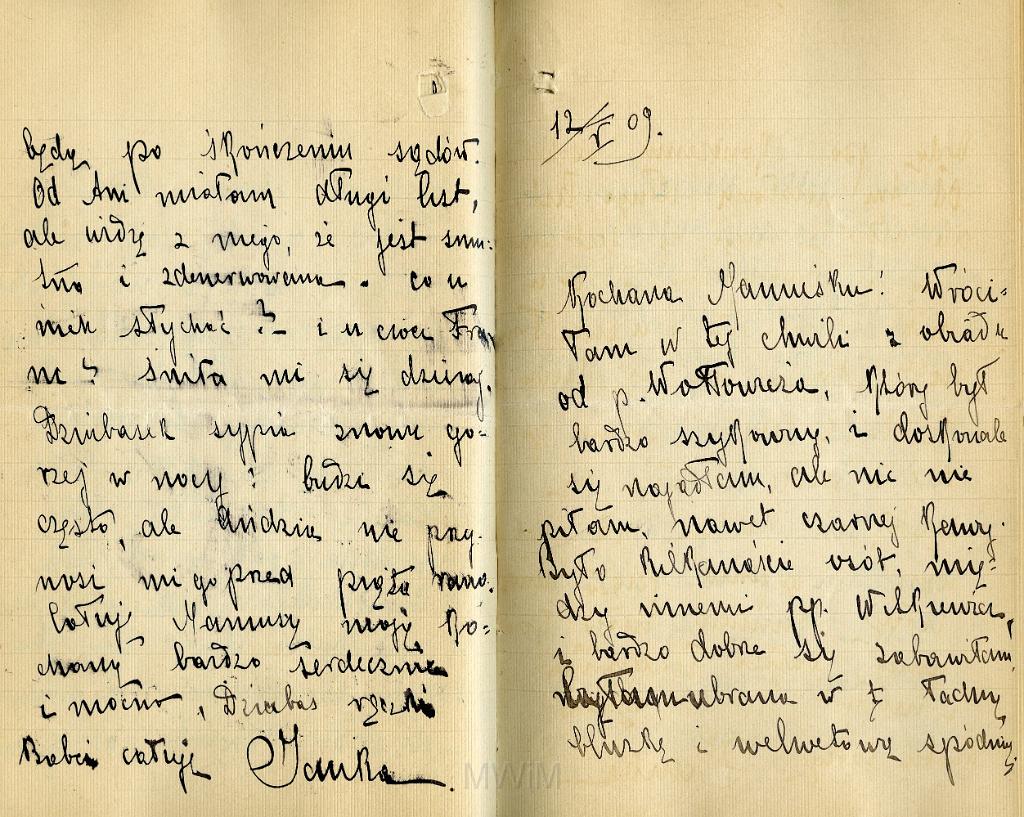 będę po skończeniu sądów.
Od Ani miałam długi list,
ale widzę z niego, że jest smu-
tna i zdenerwowana. co u
nich słychać? i u cioci Fra
ni? śniła mi się dzisiaj.
Dziubasek sypia znowu go-
rzej w nocy! budzi się
często, ale Andzia nie przy-
nosi mi go przed piątą rano.
Całuję Mamusię moją ko-
chaną bardzo serdecznie
i mocno, Dziubas rączki
Babci całuję Janka.
12/V 09.
Kochana Mamuśku! Wróci-
łam w tej chwili z obiadu
od p. Wołłowicza, który był
bardzo szykowny, i doskonale
się najadłam, ale nic nie
piłam, nawet czarnej kawy.
Było kilkanaście osób, mię-
dzy innemi pp.
i bardzo dobrze się zabawiłam,
byłam ubrana w tę ładną
bluzkę i welwetową spódnicę,
MWiM